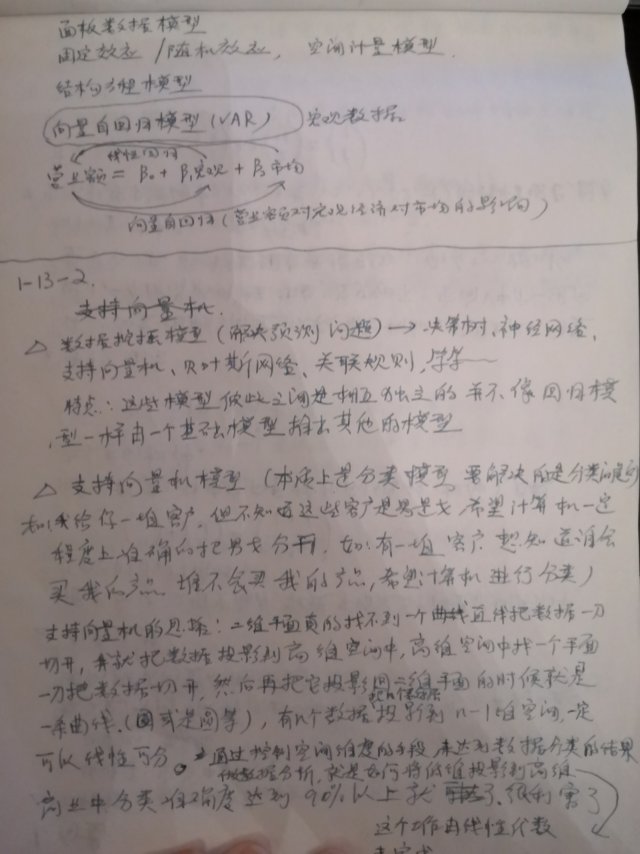 面板数据模型
固定效应 / 随机效应， 空间计量模型.
结构方程模型
向量自回归模型 (VAR) 宏观数据
线性回归
营业额 = β0 + β1宏观 + β2市场
向量自回归 (营业额对宏观经济对市场的影响)
1-13-2.
支持向量机.
△ 数据挖掘模型 (解决预测问题) → 决策树、神经网络、
支持向量机、贝叶斯网络、关联规则，等等
特点：这些模型彼此之间是相互独立的 并不像回归模
型一样由一个基础模型推出其他的模型
△ 支持向量机模型 (本质上是分类模型 要解决的是分类问题
如：我给你一堆客户，但不知道这些客户是男是女，希望计算机一定
程度上准确的把男女分开，如：有一堆客户 想知道谁会
买我的产品 谁不会买我的产品，希望计算机进行分类)
支持向量机的思路：二维平面真的找不到一个曲线直线把数据一刀
切开，就把数据投影到高维空间中，高维空间中找一个平面
一刀把数据切开，然后再把它投影回二维平面的时候就是
一条曲线.(圆或是圆等)，有n个数据投影到 n-1维空间，一定
可以线性可分。→ 通过控制空间维度的手段 来达到数据分类的结果
做数据分析，就是如何将低维投影到高维
商业中分类准确度达到90%以上就 很厉害了
这个工作由线性代数
来完成